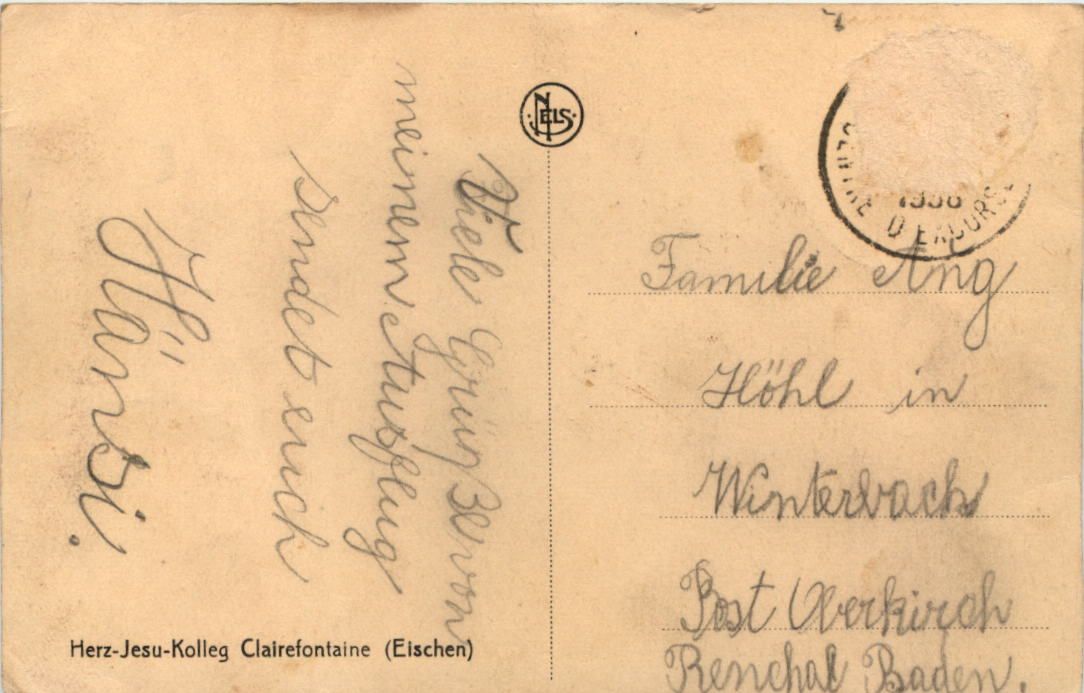 Viele Grüße von
meinem Ausflug
sendet euch
Hänsi.
Herz-Jesu-Kolleg Clairefontaine (Eischen)
NELS
1938
D'EXCURS
Familie Ang
Höhl in
Winterbach
Post Oberkirch
Renchal Baden.